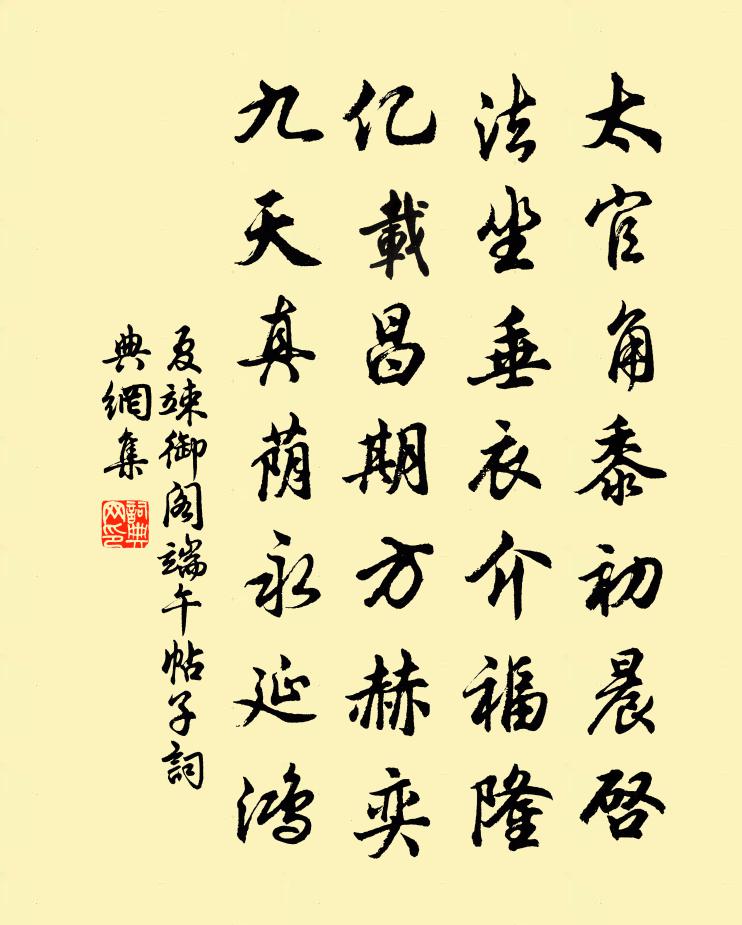 太官角黍初晨启
法坐垂衣介福隆
亿載昌期方赫奕
九天真荫永延鸿
夏竦御阁端午帖子詞
典網集
詞典网印